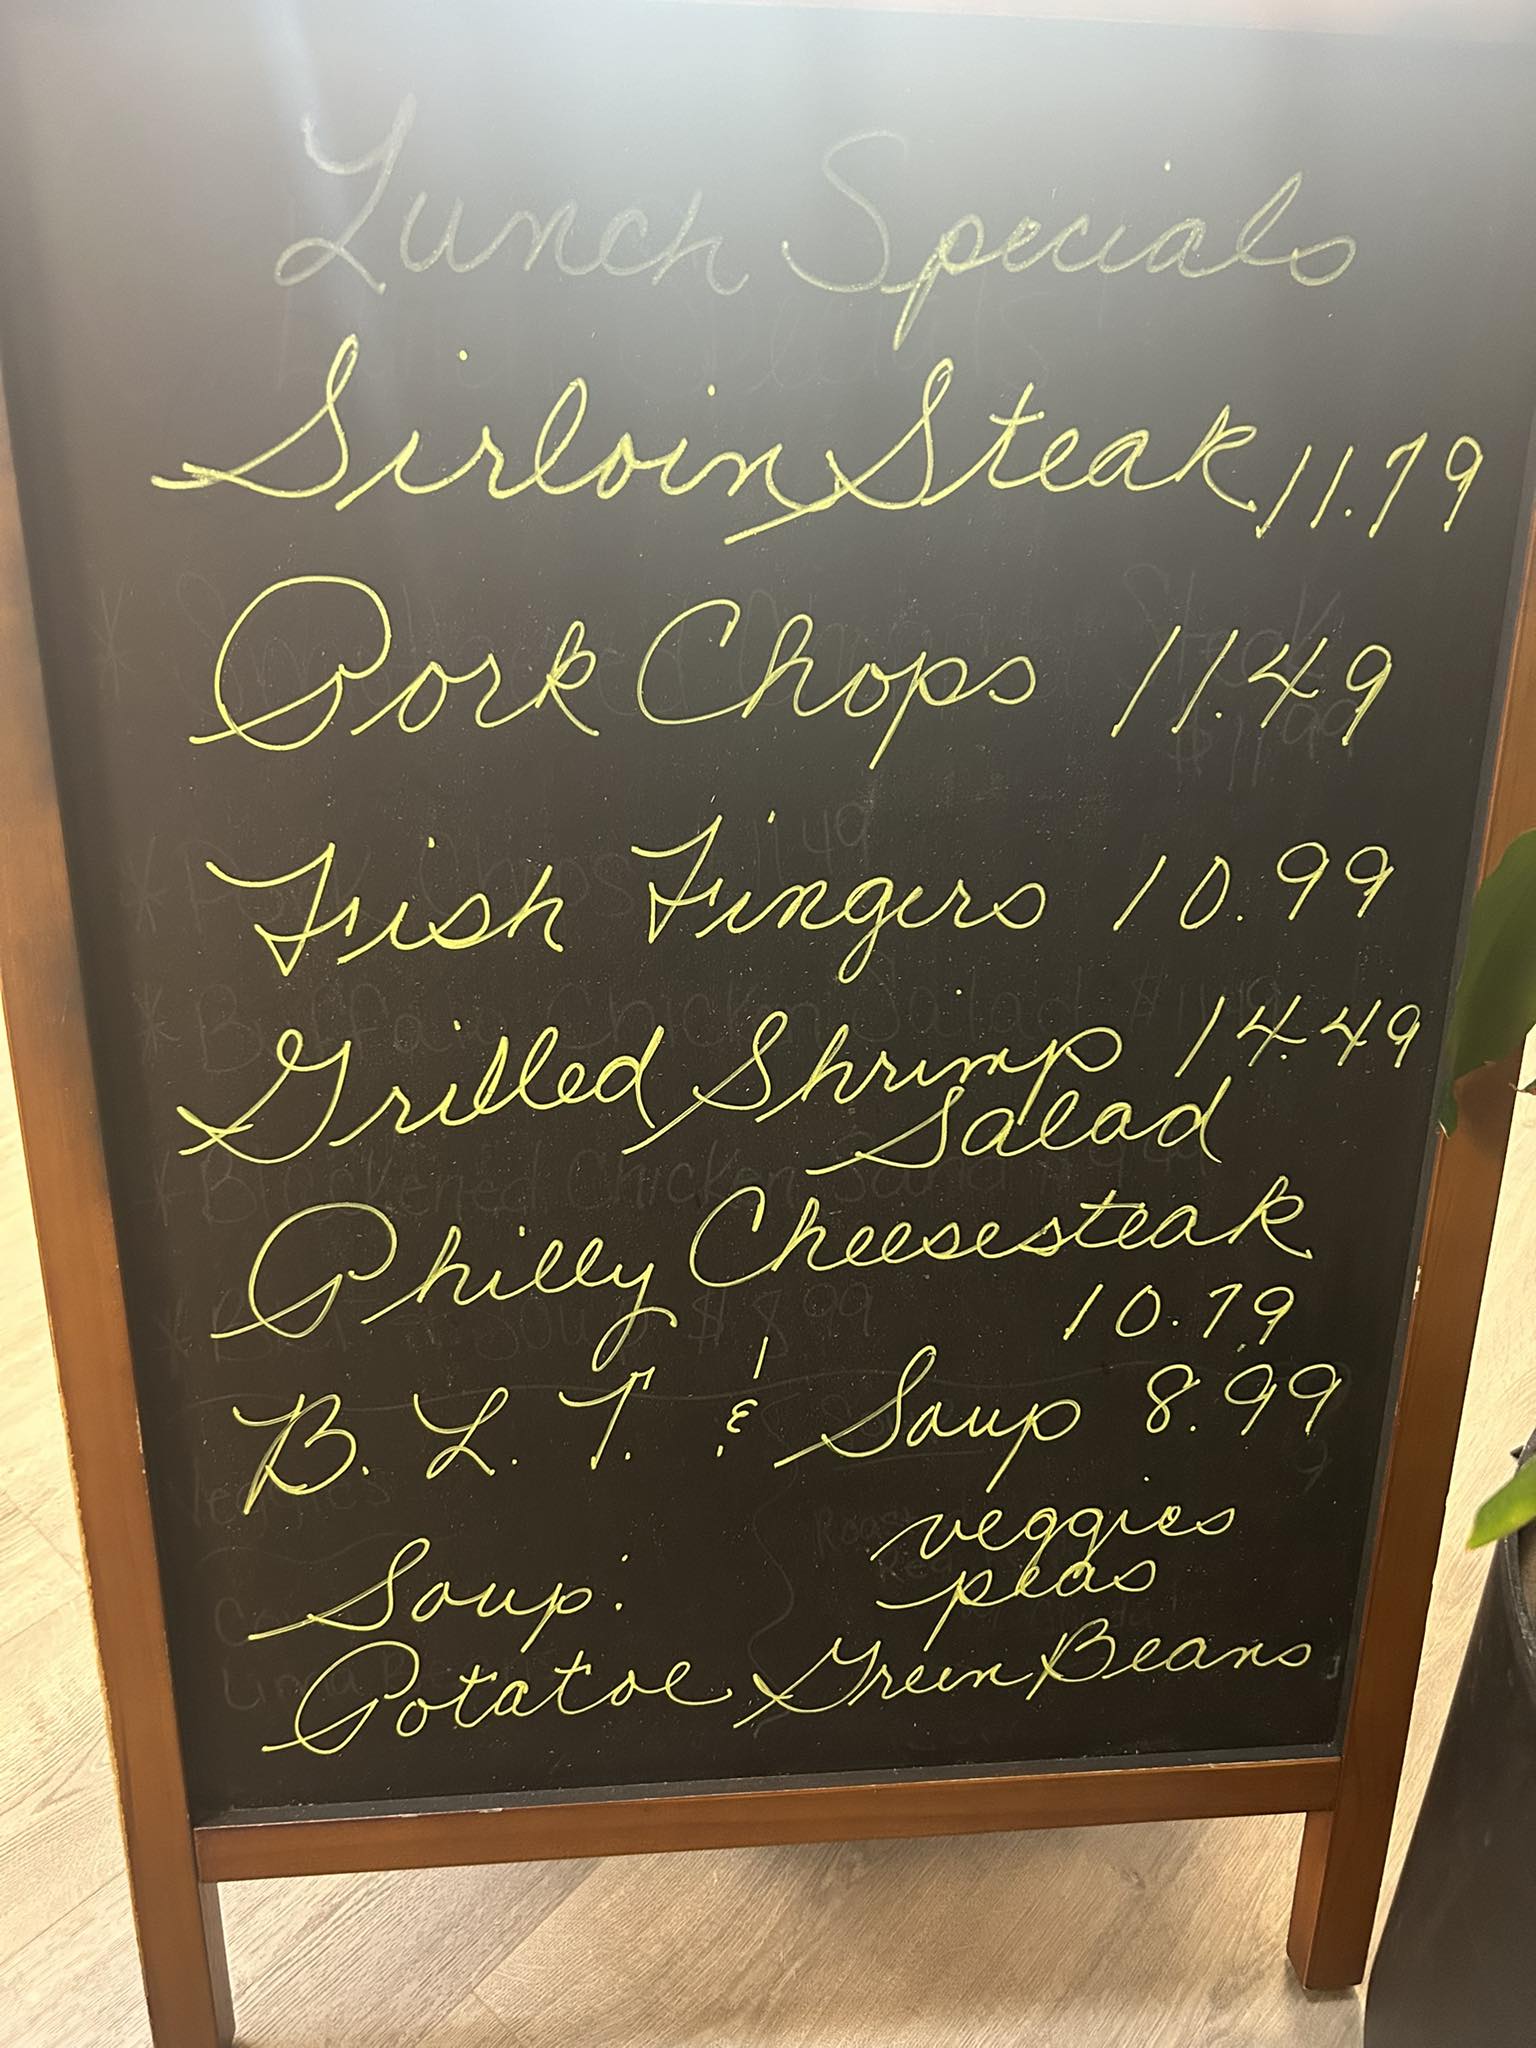 Lunch Specials
Sirloin Steak 11.79
Pork Chops 11.49
Fish Fingers 10.99
Grilled Shrimp 14.49
Salad
Philly Cheesesteak
10.79
B.L.T. & Soup 8.99
Soup: veggies
peas
Potatoe Green Beans